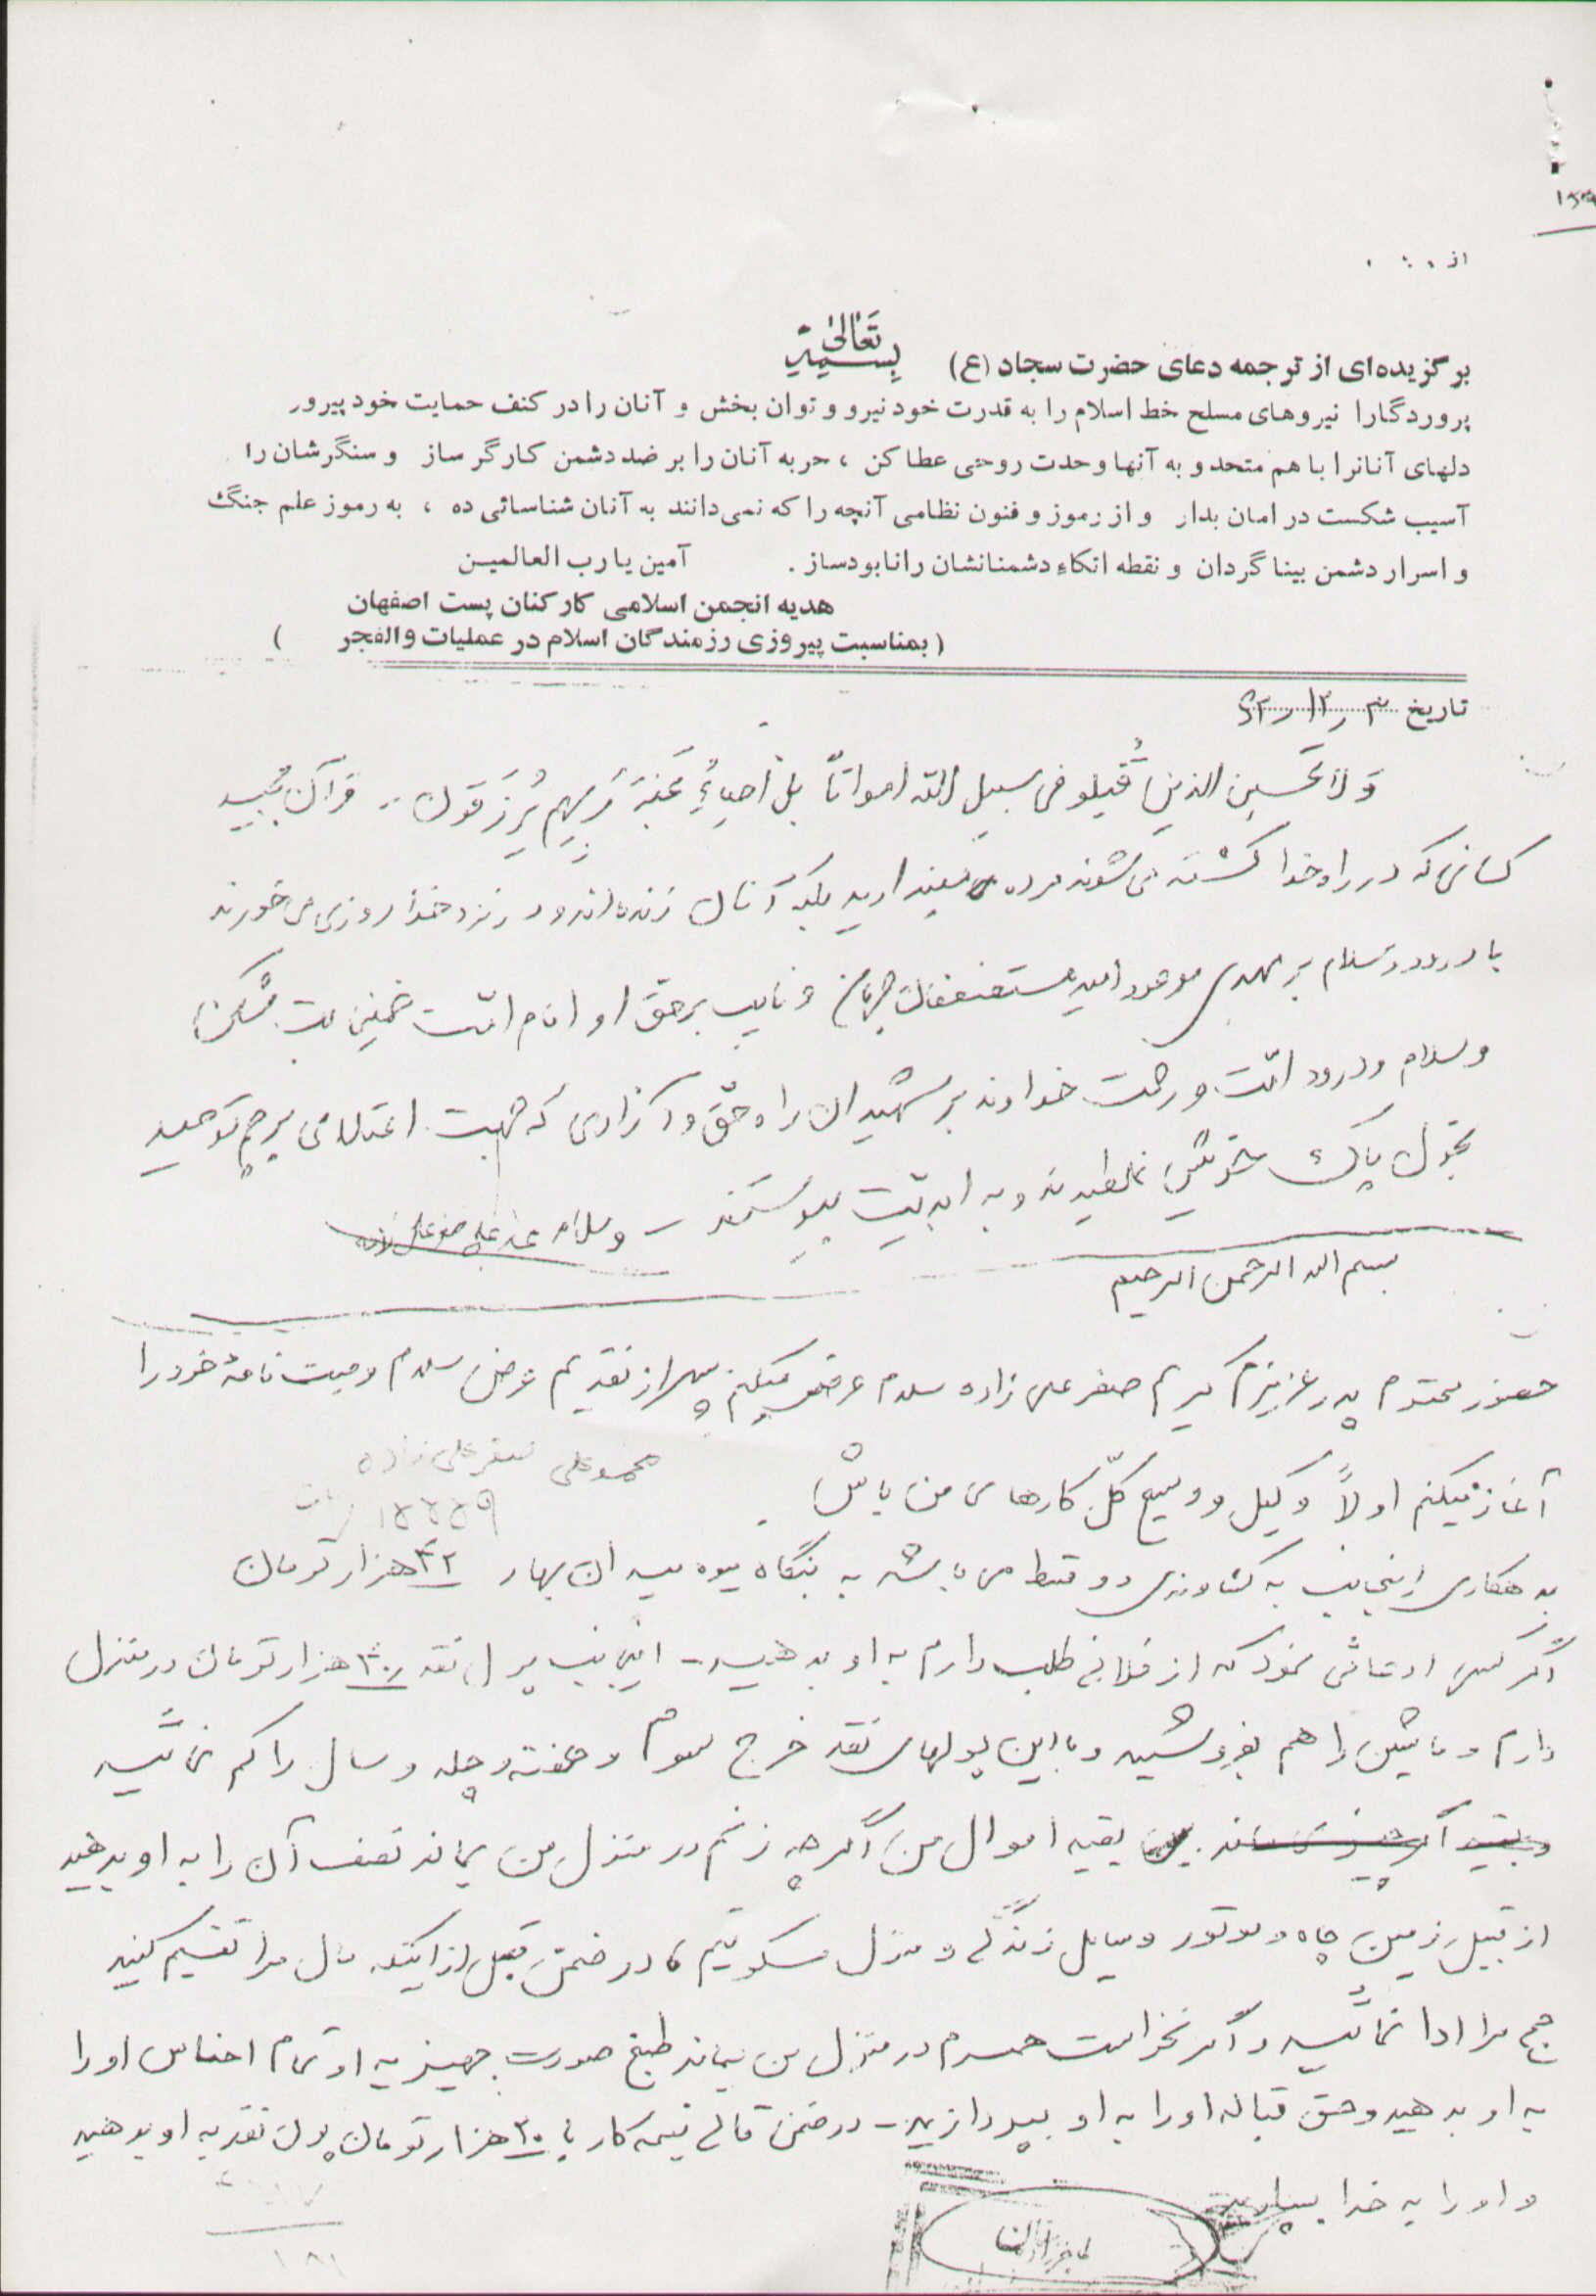 از
بسمه تعالی
برگزیده‌ای از ترجمه دعای حضرت سجاد (ع)
پروردگارا نیروهای مسلح خط اسلام را به قدرت خود نیرو و توان بخش و آنان را در کنف حمایت خود پیرور
دلهای آنانرا با هم متحد و به آنها وحدت روحی عطا کن ، حربه آنان را بر ضد دشمن کارگر ساز و سنگرشان را
آسیب شکست در امان بدار و از رموز و فنون نظامی آنچه را که نمی‌دانند به آنان شناسائی ده ، به رموز علم جنگ
و اسرار دشمن بینا گردان و نقطه اتکاء دشمنانشان را نابود ساز . آمین یا رب العالمین
هدیه انجمن اسلامی کارکنان پست اصفهان
( بمناسبت پیروزی رزمندگان اسلام در عملیات والفجر )
تاریخ ۳ ر ۱۲ ر ۶۲
وَلا تحسبن الذین قُتِلو فی سبیل الله امواتاً بل احیاءٌ عِندَ رَبِهِم یُرزَقون .. قرآن مجید
کسانی که در راه خدا کشته می‌شوند مرده مپندارید بلکه آنان زنده‌اند و در نزد خدا روزی می‌خورند
با درود و سلام بر مهدی موعود امید مستضعفان جهان و نایب برحق او امام امت خمینی بت شکن
و سلام و درود امت و رحمت خداوند بر شهیدان راه حق و آزادی که جهت اعتلای پرچم توحید
بخون پاک خویش غلطیدند و به ابدیت پیوستند - والسلام صفرعلی زاده
بسم الله الرحمن الرحیم
حضور محترم پدر عزیزم کریم صفرعلی زاده سلام عرض میکنم پس از تقدیم عرض سلام وصیت نامهٔ خود را
محمدعلی صفرعلی زاده
آغاز میکنم اولاً وکیل و وصی کلّ کارهای من باش
بدهکاری اینجانب به کشاورزی دو قسط می باشد به بنگاه میوه میدان بهار ۴۲ هزار تومان
اگر کسی ادعائی نمود که از فلانی طلب دارم به او بدهید - اینجانب پول نقد ۳۰ هزار تومان در منزل
دارم و ماشین را هم بفروشید و با این پولهای نقد خرج سوم و هفته و چله و سال را کم نمائید
بقیه اموال من اگر چه زنم در منزل من بماند نصف آن را به او بدهید
از قبیل زمین چاه و موتور وسایل زندگی و منزل مسکونیم ، در ضمن قبل از اینکه مال مرا تقسیم کنید
حج مرا ادا نمائید و اگر نخواست همسرم در منزل من بماند طبق صورت جهیزیه او تمام اجناس او را
به او بدهید و حق قباله او را به او بپردازید - در ضمن قالی نیمه کار با ۲۰ هزار تومان پول نقد به او بدهید
و او را به خدا بسپارید